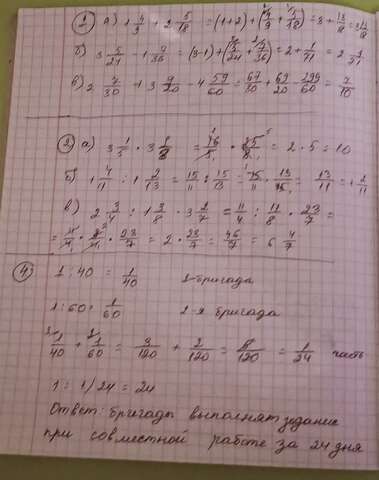 1) а) 1 4/9 + 2 5/18 = (1+2) + (4/9 + 5/18) = 3 + 13/18 = 3 13/18
б) 3 5/24 - 1 7/36 = (3-1) + (5/24 + 7/36) = 2 + 1/71 = 2 1/71
в) 2 7/30 + 3 9/20 - 4 59/60 = 67/30 + 69/20 - 299/60 = 7/10
2) а) 3 1/5 · 3 1/8 = 16/5 · 25/8 = 2 · 5 = 10
б) 1 4/11 : 1 2/13 = 15/11 : 15/13 = 15/11 · 13/15 = 13/11 = 1 2/11
в) 2 3/4 : 1 3/8 · 3 2/7 = 11/4 : 11/8 · 23/7 =
= 11/4 · 8/11 · 23/7 = 2 · 23/7 = 46/7 = 6 4/7
4) 1 : 40 = 1/40 1-бригада
1 : 60 = 1/60 2-я бригада
1/40 + 1/60 = 3/120 + 2/120 = 5/120 = 1/24 часть
1 = 1/24 = 24
Ответ: бригады выполнят задание
при совместной работе за 24 дня